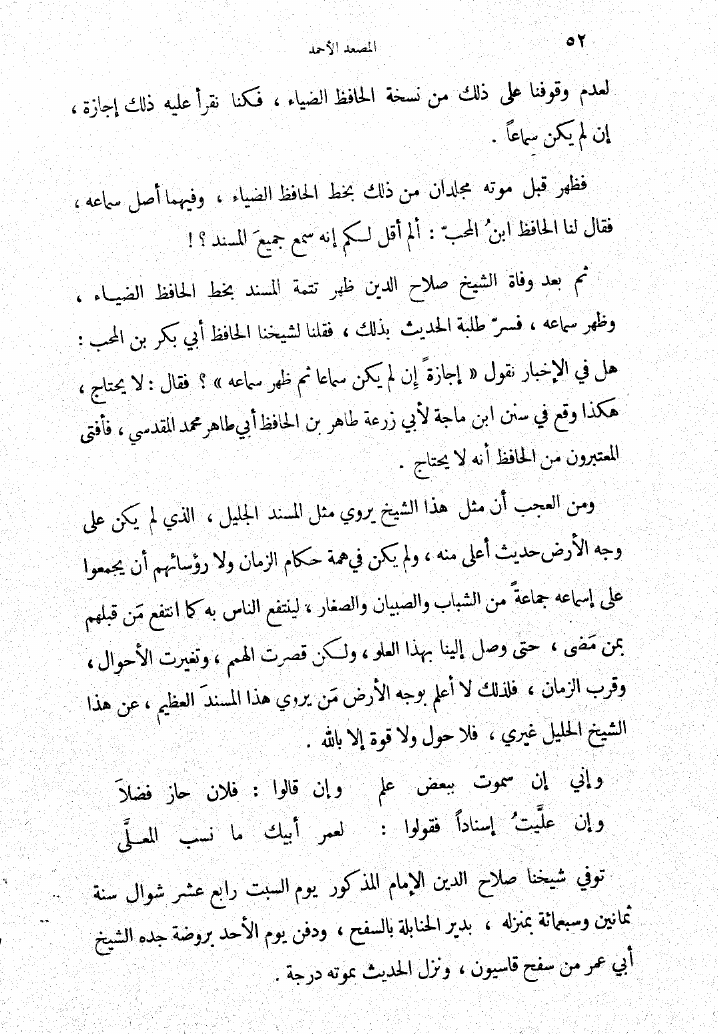 ٥٢
المصعد الأحمد
لعدم وقوفنا على ذلك من نسخة الحافظ الضياء ، فكنا نقرأ عليه ذلك إجازة ،
إن لم يكن سماعاً .
فظهر قبل موته مجلدان من ذلك بخط الحافظ الضياء ، وفيهما أصل سماعه ،
فقال لنا الحافظ ابنُ المحبّ : ألم أقل لكم إنه سمع جميعَ المسند ؟ !
ثم بعد وفاة الشيخ صلاح الدين ظهر تتمة المسند بخط الحافظ الضياء ،
وظهر سماعه ، فسرّ طلبة الحديث بذلك ، فقلنا لشيخنا الحافظ أبي بكر بن المحب :
هل في الإخبار نقول « إجازةً إن لم يكن سماعا ثم ظهر سماعه » ؟ فقال : لا يحتاج ،
هكذا وقع في سنن ابن ماجة لأبي زرعة طاهر بن الحافظ أبي طاهر محمد المقدسي ، فأفتى
المعتبرون من الحافظ أنه لا يحتاج .
ومن العجب أن مثل هذا الشيخ يروي مثل المسند الجليل ، الذي لم يكن على
وجه الأرض حديث أعلى منه ، ولم يكن في همة حكام الزمان ولا رؤسائهم أن يجمعوا
على إسماعه جماعةً من الشباب والصبيان والصغار ، لينتفع الناس به كما انتفع مَن قبلهم
بمن مَضى ، حتى وصل إلينا بهذا العلو ، ولكن قصرت الهمم ، وتغيرت الأحوال ،
وقرب الزمان ، فلذلك لا أعلم بوجه الأرض مَن يروي هذا المسندَ العظيم ، عن هذا
الشيخ الجليل غيري ، فلا حول ولا قوة إلا بالله .
وإني إن سموت ببعض علم وإن قالوا : فلان حاز فضلاَ
وإن علَّيتُ إسناداً فقولوا : لعمر أبيك ما نسب المعلَّى
توفي شيخنا صلاح الدين الإمام المذكور يوم السبت رابع عشر شوال سنة
ثمانين وسبعمائة بمنزله ، بدير الحنابلة بالسفح ، ودفن يوم الأحد بروضة جده الشيخ
أبي عمر من سفح قاسيون ، ونزل الحديث بموته درجة .